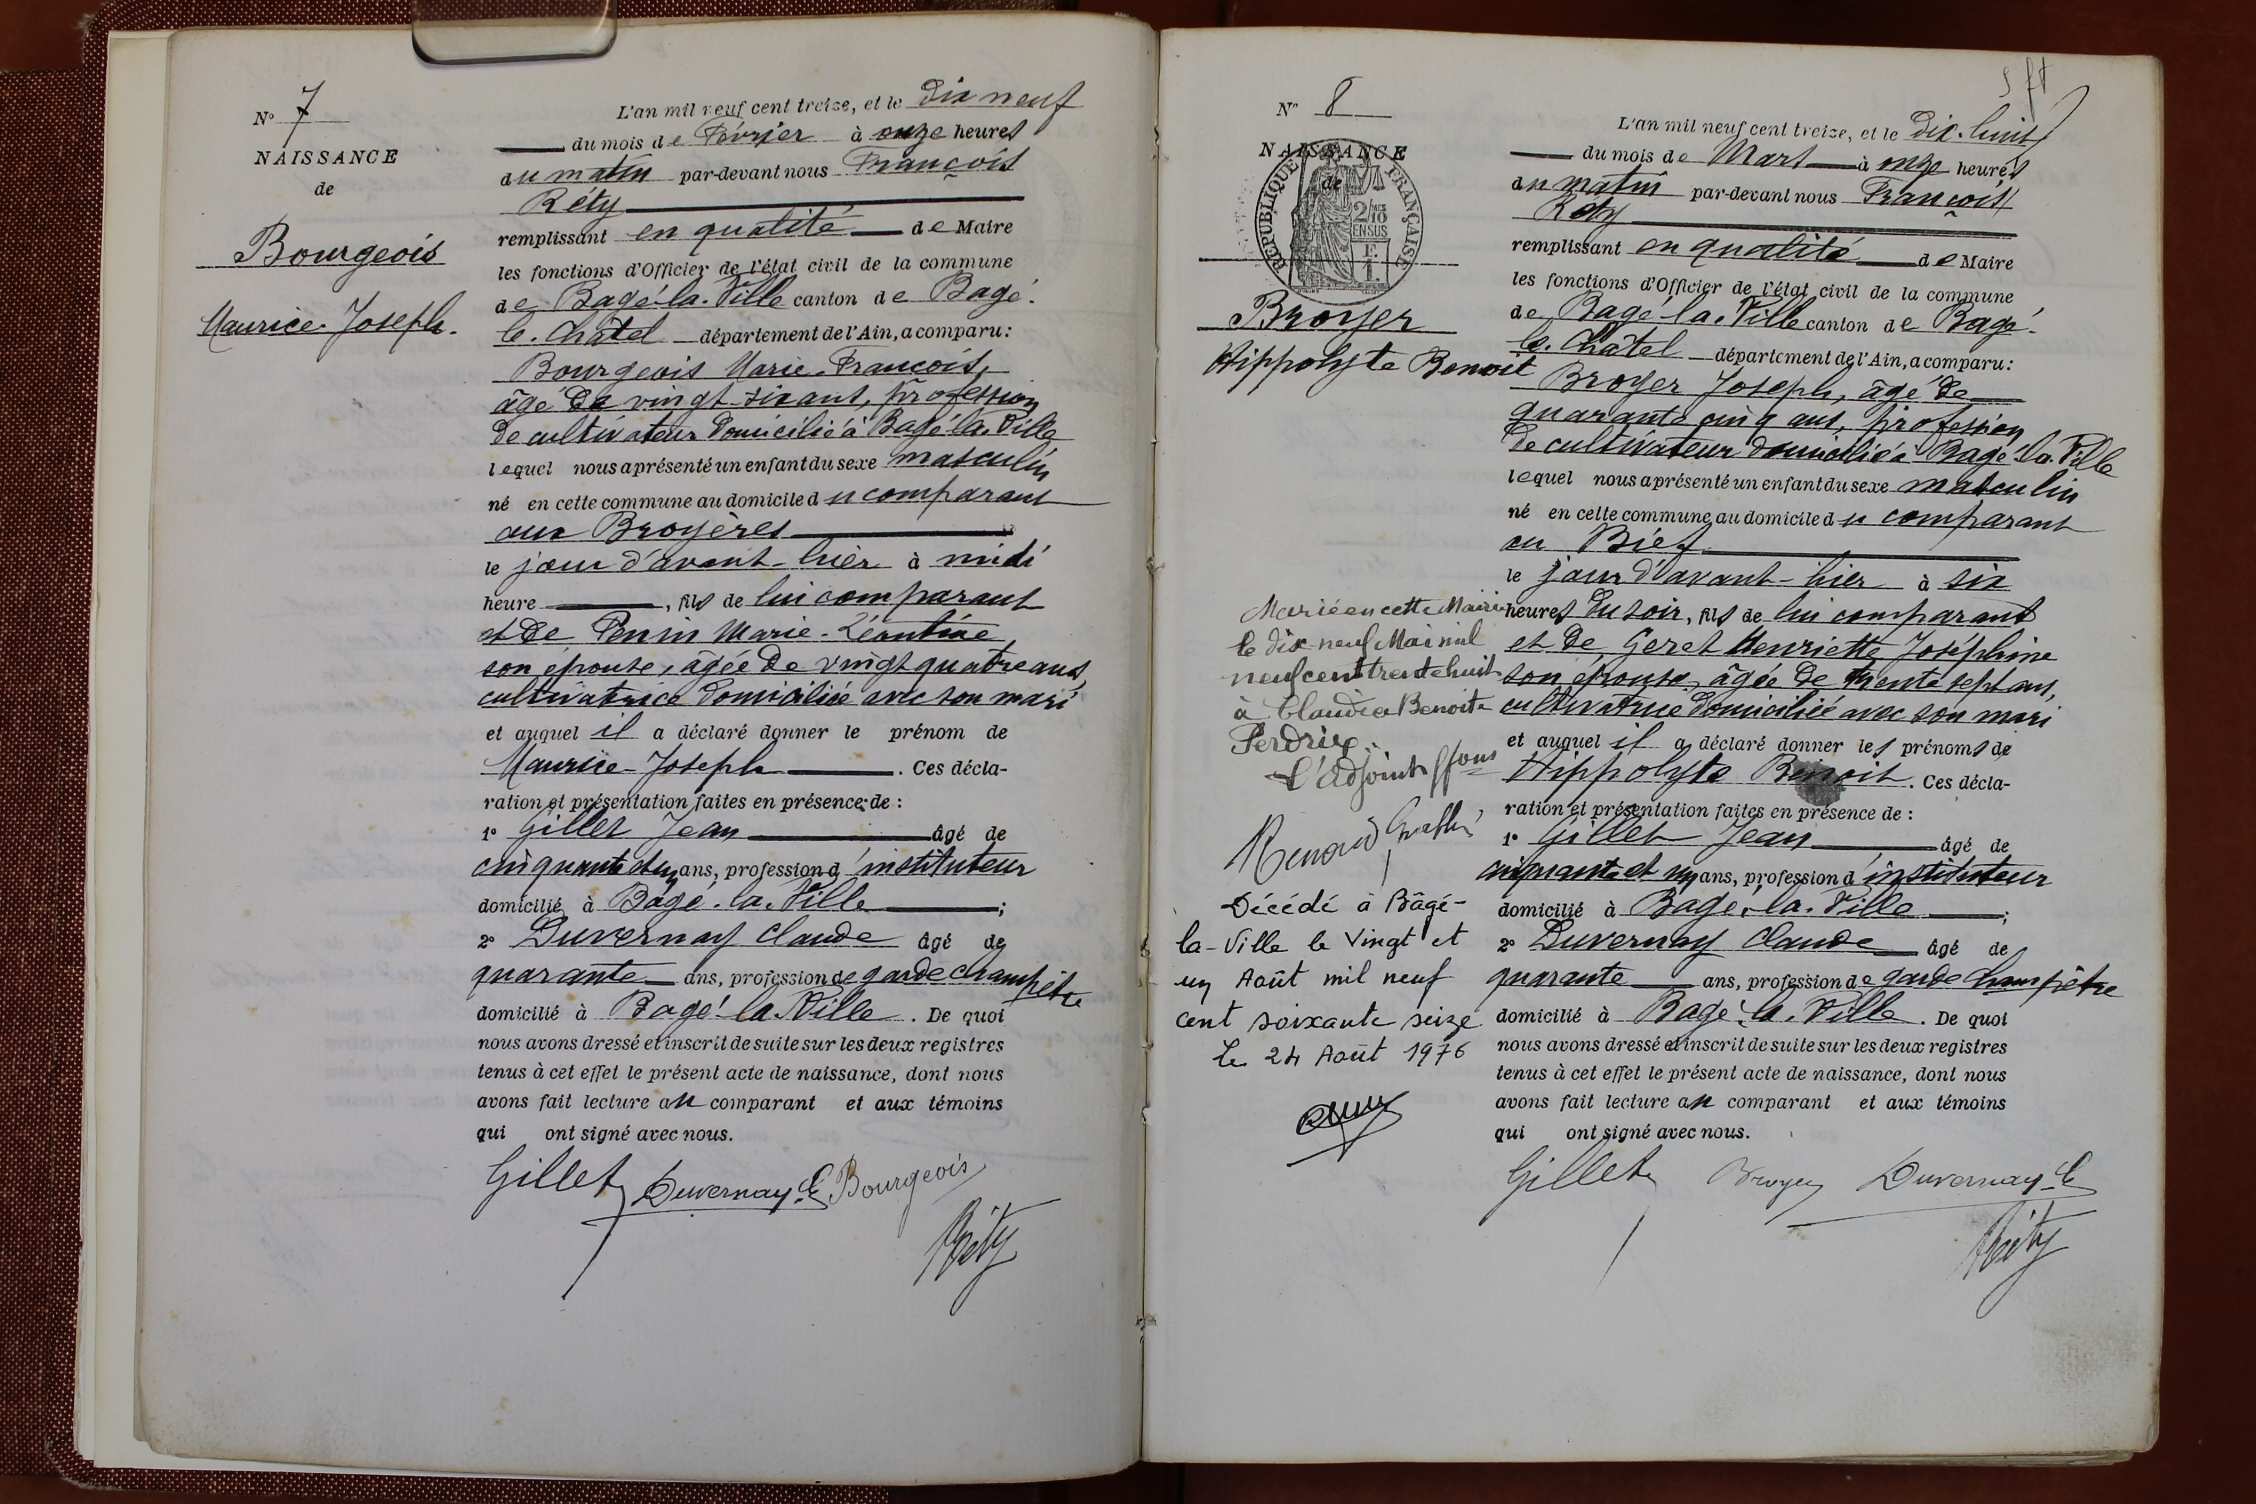 N° 7
NAISSANCE
de
Bourgeois
Maurice-Joseph.
L'an mil neuf cent treize, et le Dix neuf
du mois de Février à onze heures
du matin par-devant nous François
Réty
remplissant en qualité de Maire
les fonctions d'Officier de l'état civil de la commune
de Bagé-la-Ville canton de Bagé-
le-Châtel département de l'Ain, a comparu:
Bourgeois Marie-François,
âgé de vingt-six ans, profession
de cultivateur domicilié à Bagé-la-Ville
lequel nous a présenté un enfant du sexe masculin
né en cette commune au domicile du comparant
aux Broyères
le jour d'avant-hier à midi
heure , fils de lui comparant
et de Penin Marie-Léontine,
son épouse, âgée de vingt quatre ans,
cultivatrice domiciliée avec son mari
et auquel il a déclaré donner le prénom de
Maurice-Joseph . Ces décla-
ration et présentation faites en présence de :
1° Gillet Jean âgé de
cinquante et un ans, profession d'instituteur
domicilié à Bagé-la-Ville ;
2° Duvernay Claude âgé de
quarante ans, profession de garde champêtre
domicilié à Bagé-la-Ville . De quoi
nous avons dressé et inscrit de suite sur les deux registres
tenus à cet effet le présent acte de naissance, dont nous
avons fait lecture au comparant et aux témoins
qui ont signé avec nous.
Gillet Duvernay C Bourgeois
Réty
N° 8
NAISSANCE
de
RÉPUBLIQUE FRANÇAISE
2/10
EN SUS
Broyer
Hippolyte Benoit
Marié en cette Mairie
le dix-neuf Mai mil
neuf cent trente huit
à Claudia Benoite
Perdrix.
L'adjoint ffons
Renoud
Décédé à Bâgé-
la-Ville le Vingt et
un Août mil neuf
cent soixante seize
Le 24 Août 1976
L'an mil neuf cent treize, et le Dix-huit
du mois de Mars à onze heures
du matin par-devant nous François
Réty
remplissant en qualité de Maire
les fonctions d'Officier de l'état civil de la commune
de Bagé-la-Ville canton de Bagé-
le-Châtel département de l'Ain, a comparu:
Broyer Joseph, âgé de
quarante cinq ans, profession
de cultivateur domicilié à Bagé-la-Ville
lequel nous a présenté un enfant du sexe masculin
né en cette commune au domicile du comparant
au Bief
le jour d'avant-hier à six
heures du soir, fils de lui comparant
et de Geret Henriette Joséphine
son épouse, âgée de trente sept ans,
cultivatrice domiciliée avec son mari
et auquel il a déclaré donner les prénoms de
Hippolyte Benoit . Ces décla-
ration et présentation faites en présence de :
1° Gillet Jean âgé de
cinquante et un ans, profession d'instituteur
domicilié à Bagé-la-Ville ;
2° Duvernay Claude âgé de
quarante ans, profession de garde champêtre
domicilié à Bagé-la-Ville . De quoi
nous avons dressé et inscrit de suite sur les deux registres
tenus à cet effet le présent acte de naissance, dont nous
avons fait lecture au comparant et aux témoins
qui ont signé avec nous.
Gillet Broyer Duvernay C
Réty